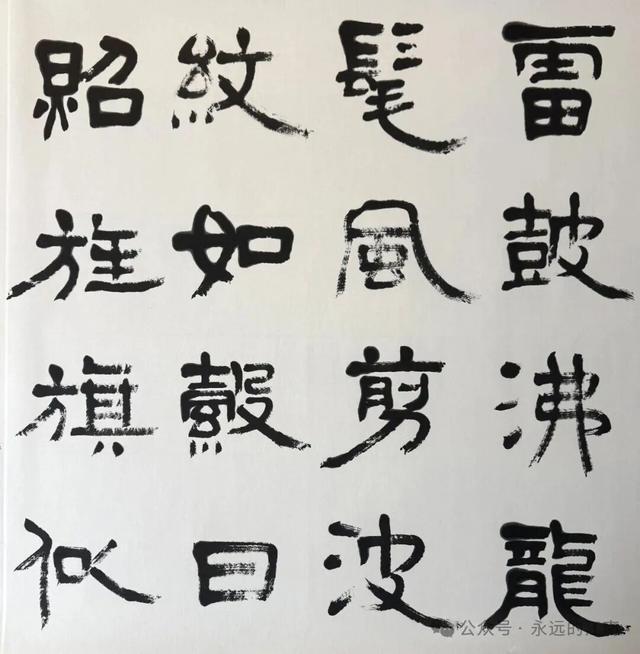 雷鼓沸龍
髦風剪波
紋如縠日
照旌旗似
公众号 · 永远的